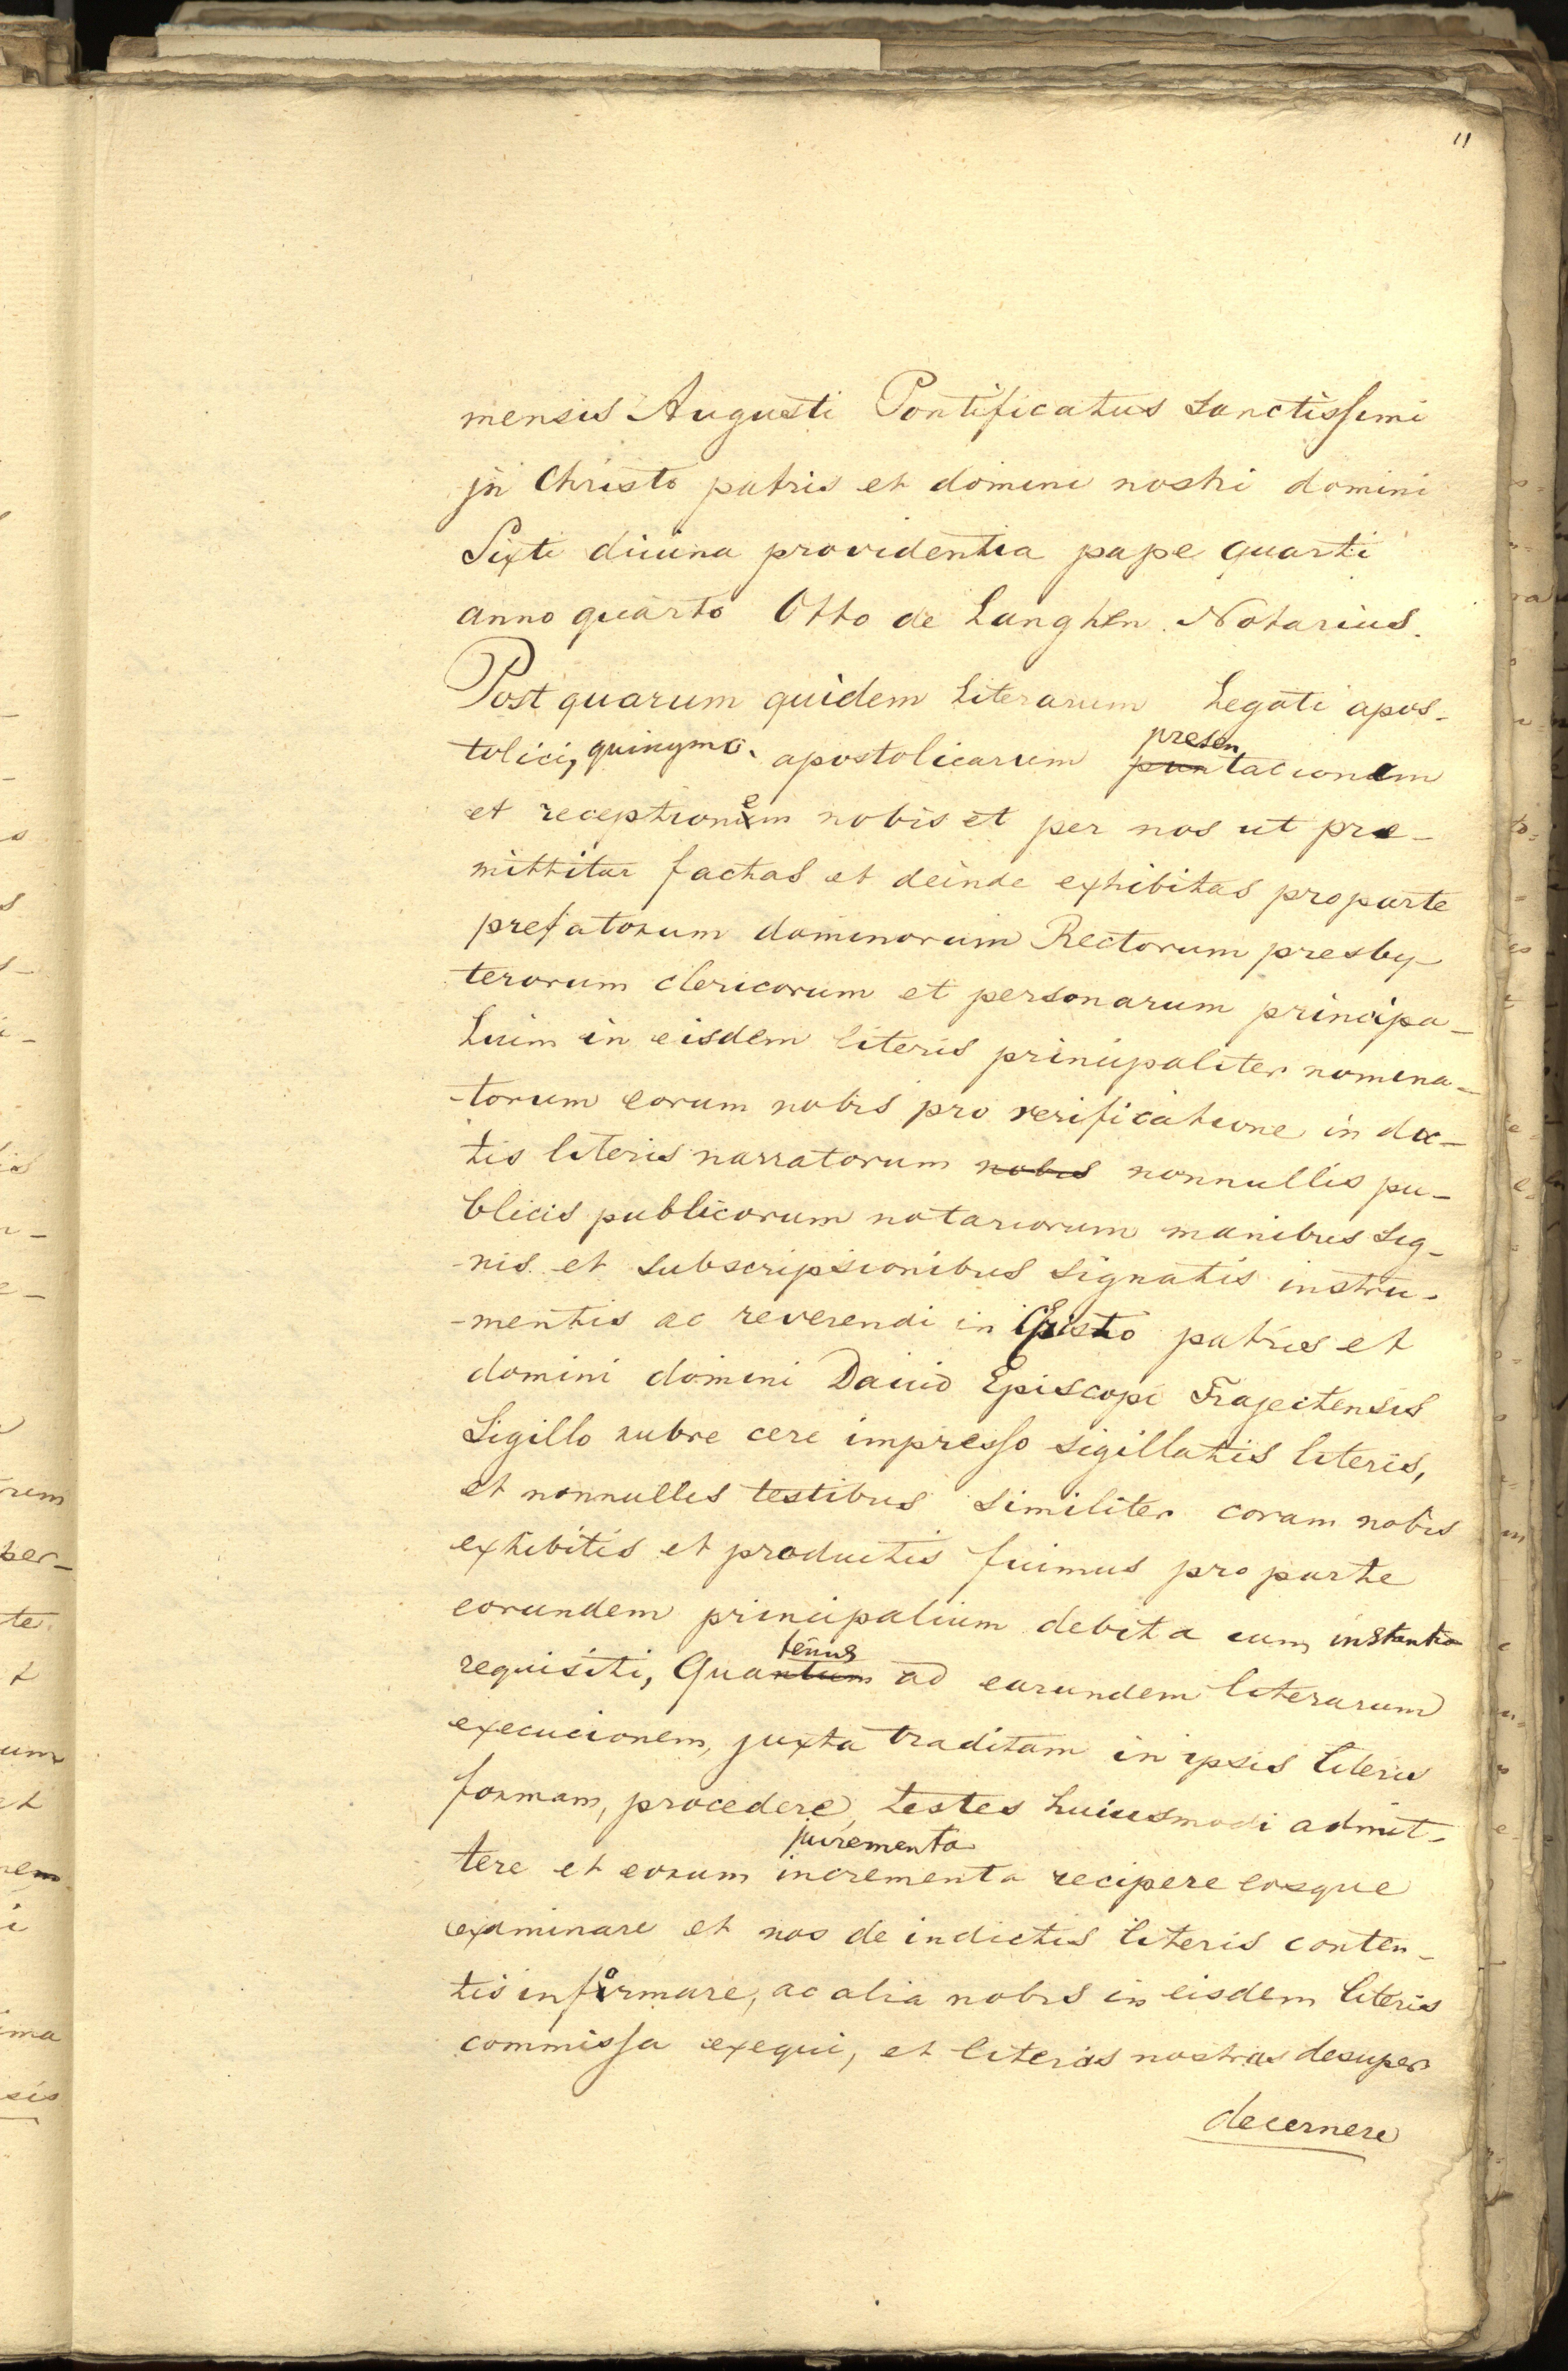 11
mensis Augusti Pontificatus sanctissimi
jn Christo patris et domini nostri domini
Sixti diuina providentia pape quarti
anno quarto Otto de Langhen Notarius.
Post quarum quidem literarum Legati apos-
tolici, quinymo apostolicarum presentacionem
et receptionem nobis et per nos ut pre-
mittitur factas et deinde exhibitas pro parte
prefatorum dominorum Rectorum presby-
terorum clericorum et personarum principa-
lium in eisdem literis principaliter nomina-
-torum eorum nobis pro verificatione in dic-
tis literis narratorum nobis nonnullis pu-
blicis publicorum notariorum manibus sig-
-nis et subscripsionibus signatis instru-
-mentis ac reverendi in Christo patris et
domini domini Dauid Episcopi Trajectensis
Sigillo rubre cere impresso sigillatis literis,
et nonnullis testibus similiter coram nobis
exhibitis et productis fuimus pro parte
eorundem principalium debita cum instantia
requisiti, Quatenus ad earundem literarum
execucionem, juxta traditam in ipsis literis
formam, procedere, testes huiusmodi admit-
juramenta
tere et eorum incrementa recipere eosque
examinare et nos de in dictis literis conten-
tis informare, ac alia nobis in eisdem literis
commissa exequi, et literas nostras desuper
decernere